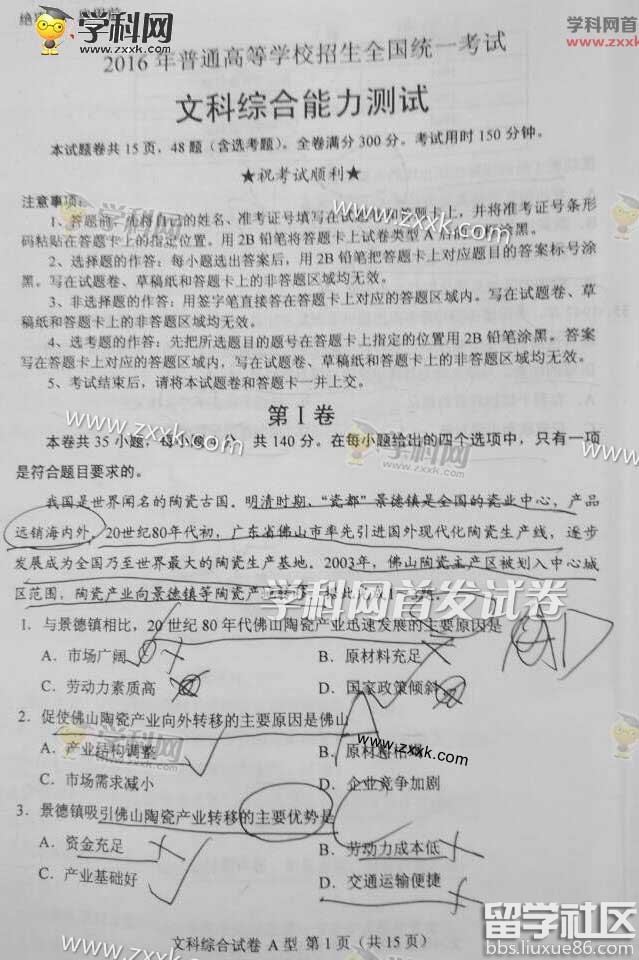 绝
学科网
www.zxxk.com
学科网
www.zxxk.com
2016年普通高等学校招生全国统一考试
文科综合能力测试
本试题卷共15页，48题（含选考题）。全卷满分300分。考试用时150分钟。
★祝考试顺利★
学科网
www.zxxk.com
注意事项：
1、答题前，先将自己的姓名、准考证号填写在试题卷和答题卡上，并将准考证号条形
码粘贴在答题卡上的指定位置。用2B铅笔将答题卡上试卷类型A后的方框涂黑。
2、选择题的作答：每小题选出答案后，用2B铅笔把答题卡上对应题目的答案标号涂
黑。写在试题卷、草稿纸和答题卡上的非答题区域均无效。
3、非选择题的作答：用签字笔直接答在答题卡上对应的答题区域内。写在试题卷、草
稿纸和答题卡上的非答题区域均无效。
4、选考题的作答：先把所选题目的题号在答题卡上指定的位置用2B铅笔涂黑。答案
写在答题卡上对应的答题区域内，写在试题卷、草稿纸和答题卡上的非答题区域均无效。
5、考试结束后，请将本试题卷和答题卡一并上交。
第Ⅰ卷
www.zxxk.com
学科网
zxxk.com
www.zx
本卷共35小题，每小题 分，共140分。在每小题给出的四个选项中，只有一项
是符合题目要求的。
我国是世界闻名的陶瓷古国。明清时期，“瓷都”景德镇是全国的瓷业中心，产品
远销海内外。20世纪80年代初，广东省佛山市率先引进国外现代化陶瓷生产线，逐步
发展成为全国乃至世界最大的陶瓷生产基地。2003年，佛山陶瓷主产区被划入中心城
区范围，陶瓷产业向景德镇等陶瓷产地转移。据此完成1~3题。
学科网首发试卷
1．与景德镇相比，20世纪80年代佛山陶瓷产业迅速发展的主要原因是
A．市场广阔
B．原材料充足
C．劳动力素质高
D．国家政策倾斜
2．促使佛山陶瓷产业向外转移的主要原因是佛山
A
A．产业结构调整
B．原材料枯
C．市场需求减小
D．企业竞争加剧
学科网
www.zxxk.com
www.zxxk.com
3．景德镇吸引佛山陶瓷产业转移的主要优势是
C
A．资金充足
B．劳动力成本低
C．产业基础好
D．交通运输便捷
文科综合试卷 A型 第1页（共15页）
www.zxxk.com
留学社区
bbs.liuxue86.com